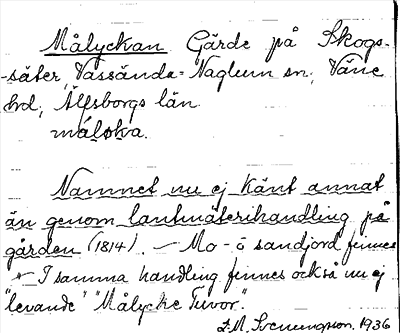 Målyckan Gärde på Skogs-
-säter, Vassända-Naglum sn, Väne
hd, Älfsborgs län
målọka.
Namnet nu ej känt annat
än genom lantmäterihandling på
gården (1814). — Mo- o sandjord finnes
I samma handling finnes också nu ej
"levande" "Målycke Tuvor".
1936